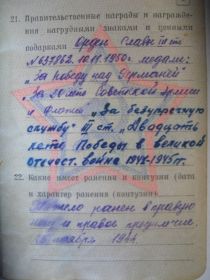 21. Правительственные награды и награжде-
ния нагрудными знаками и ценными
подарками Орден Славы III ст
№637862 10.11.1950г. медали:
„За победу над Германией"
„За 30 лет Советской Армии
и Флота „За безупречную
службу" III ст. „Двадцать
лет Победы в великой
отечест. войне 1941-1945гг.
22. Какие имеет ранения и контузии (дата
и характер ранения (контузии)
ранен в правую
и правое
1944